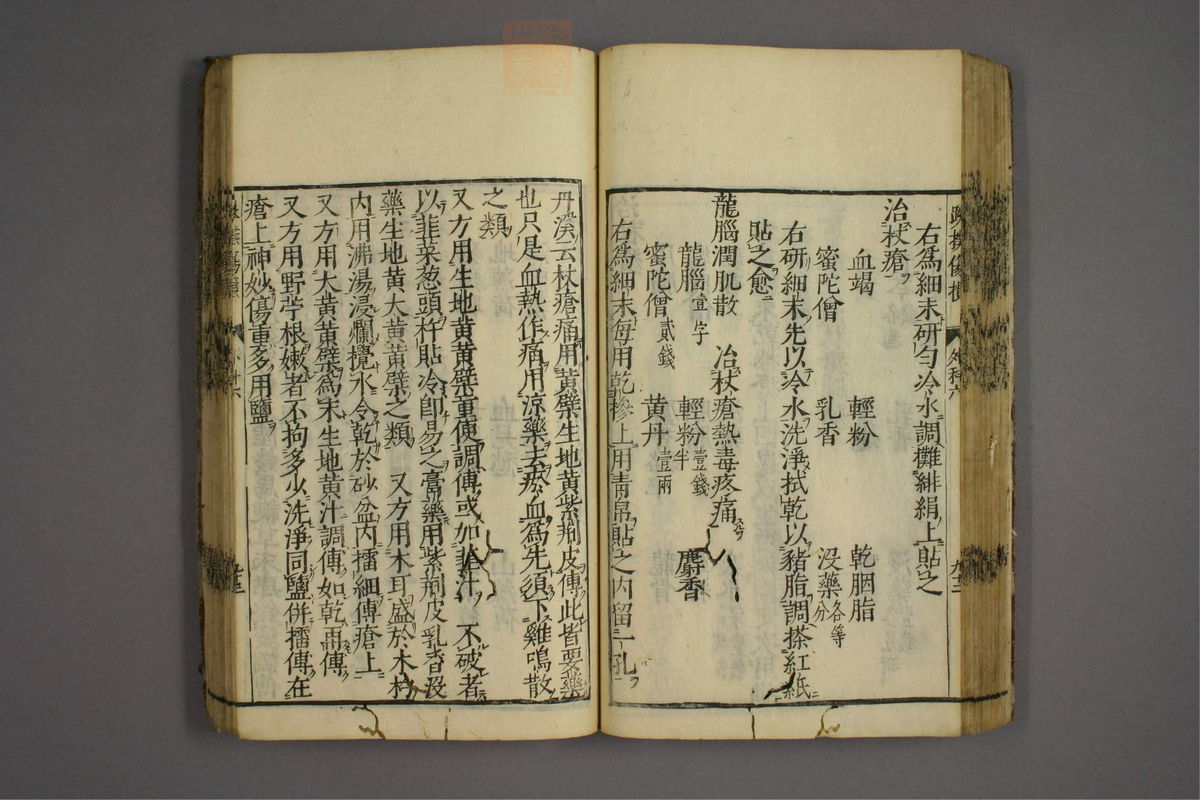 右爲細末研勻冷水調攤緋絹上貼之
治杖瘡
血竭 輕粉 乾胭脂
蜜陀僧 乳香 没藥各等分
右研細末先以冷水洗淨拭乾以豬脂調搽紅紙
貼之愈
龍腦潤肌散 治杖瘡熱毒疼痛
龍腦壹字 輕粉壹錢半 麝香
蜜陀僧貳錢 黄丹壹兩
右爲細末每用乾摻上用青帛貼之内留一孔
丹溪云杖瘡痛用黄檗生地黄紫荆皮傅此皆要藥
也只是血熱作痛用涼藥去瘀血爲先須下雞鳴散
之類
又方用生地黄黄檗童便調傅或加韭汁 不破者
以韭菜葱頭杵貼冷卽易之膏藥用紫荆皮乳香没
藥生地黄大黄黄檗之類 又方用木耳盛於木杓
内用沸湯浸爛攪水令乾於砂盆内擂細傅瘡上
又方用大黄黄檗爲末生地黄汁調傅如乾再傅
又方用野苧根嫩者不拘多少洗淨同鹽併擂傅在
瘡上神妙傷重多用鹽